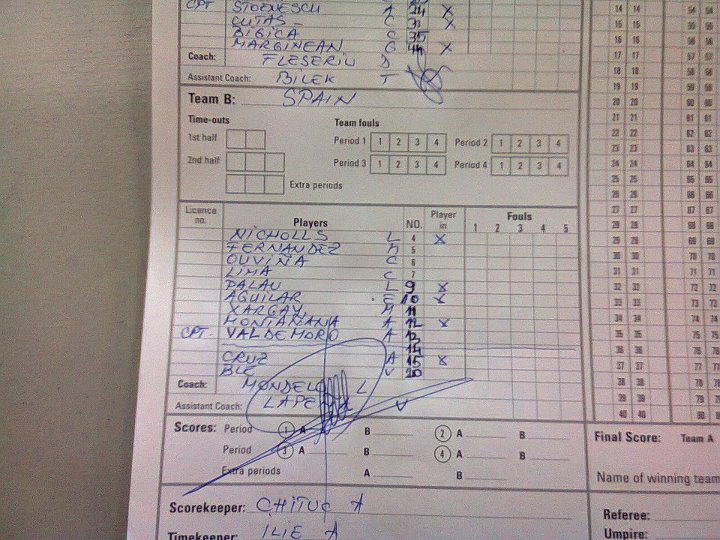 CPT STOENESCU A 24 X
CUTAS C 31 X
BIGICA C 35
MARGINEAN G 44 X
Coach: FLESERIU D
Assistant Coach: BILEK T
Team B: SPAIN
Time-outs Team fouls
1st half Period 1 1 2 3 4 Period 2 1 2 3 4
2nd half Period 3 1 2 3 4 Period 4 1 2 3 4
Extra periods
Licence no. Players NO. Player in Fouls 1 2 3 4 5
NICHOLLS L 4 X
FERNANDEZ M 5
OUVIÑA C 6
LIMA C 7
PALAU L 9 X
AGUILAR E 10 X
XARGAY M 11
MONTAÑANA A 12 X
CPT. VALDEMORO A 13
14
CRUZ A 15 X
V 20
Coach: MONDELO L
Assistant Coach: LAPEÑA V
Scores: Period 1 A B 2 A B
Period 3 A B 4 A B
Extra periods A B
Scorekeeper: CHITUC A
Timekeeper: ILIE A
14 14 54 54
15 15 55 55
16 16 56 56
17 17 57 57
18 18 58 58
19 19 59 59
20 20 60 60
21 21 61 61
22 22 62 62
23 23 63 63
24 24 64 64
25 25 65 65
26 26 66 66
27 27 67 67
28 28 68 68
29 29 69 69
30 30 70 70
31 31 71 71
32 32 72 72
33 33 73 73
34 34 74 74
35 35 75 75
36 36 76 76
37 37 77 77
38 38 78 78
39 39 79
40 40 80
Final Score: Team A
Name of winning team
Referee:
Umpire: